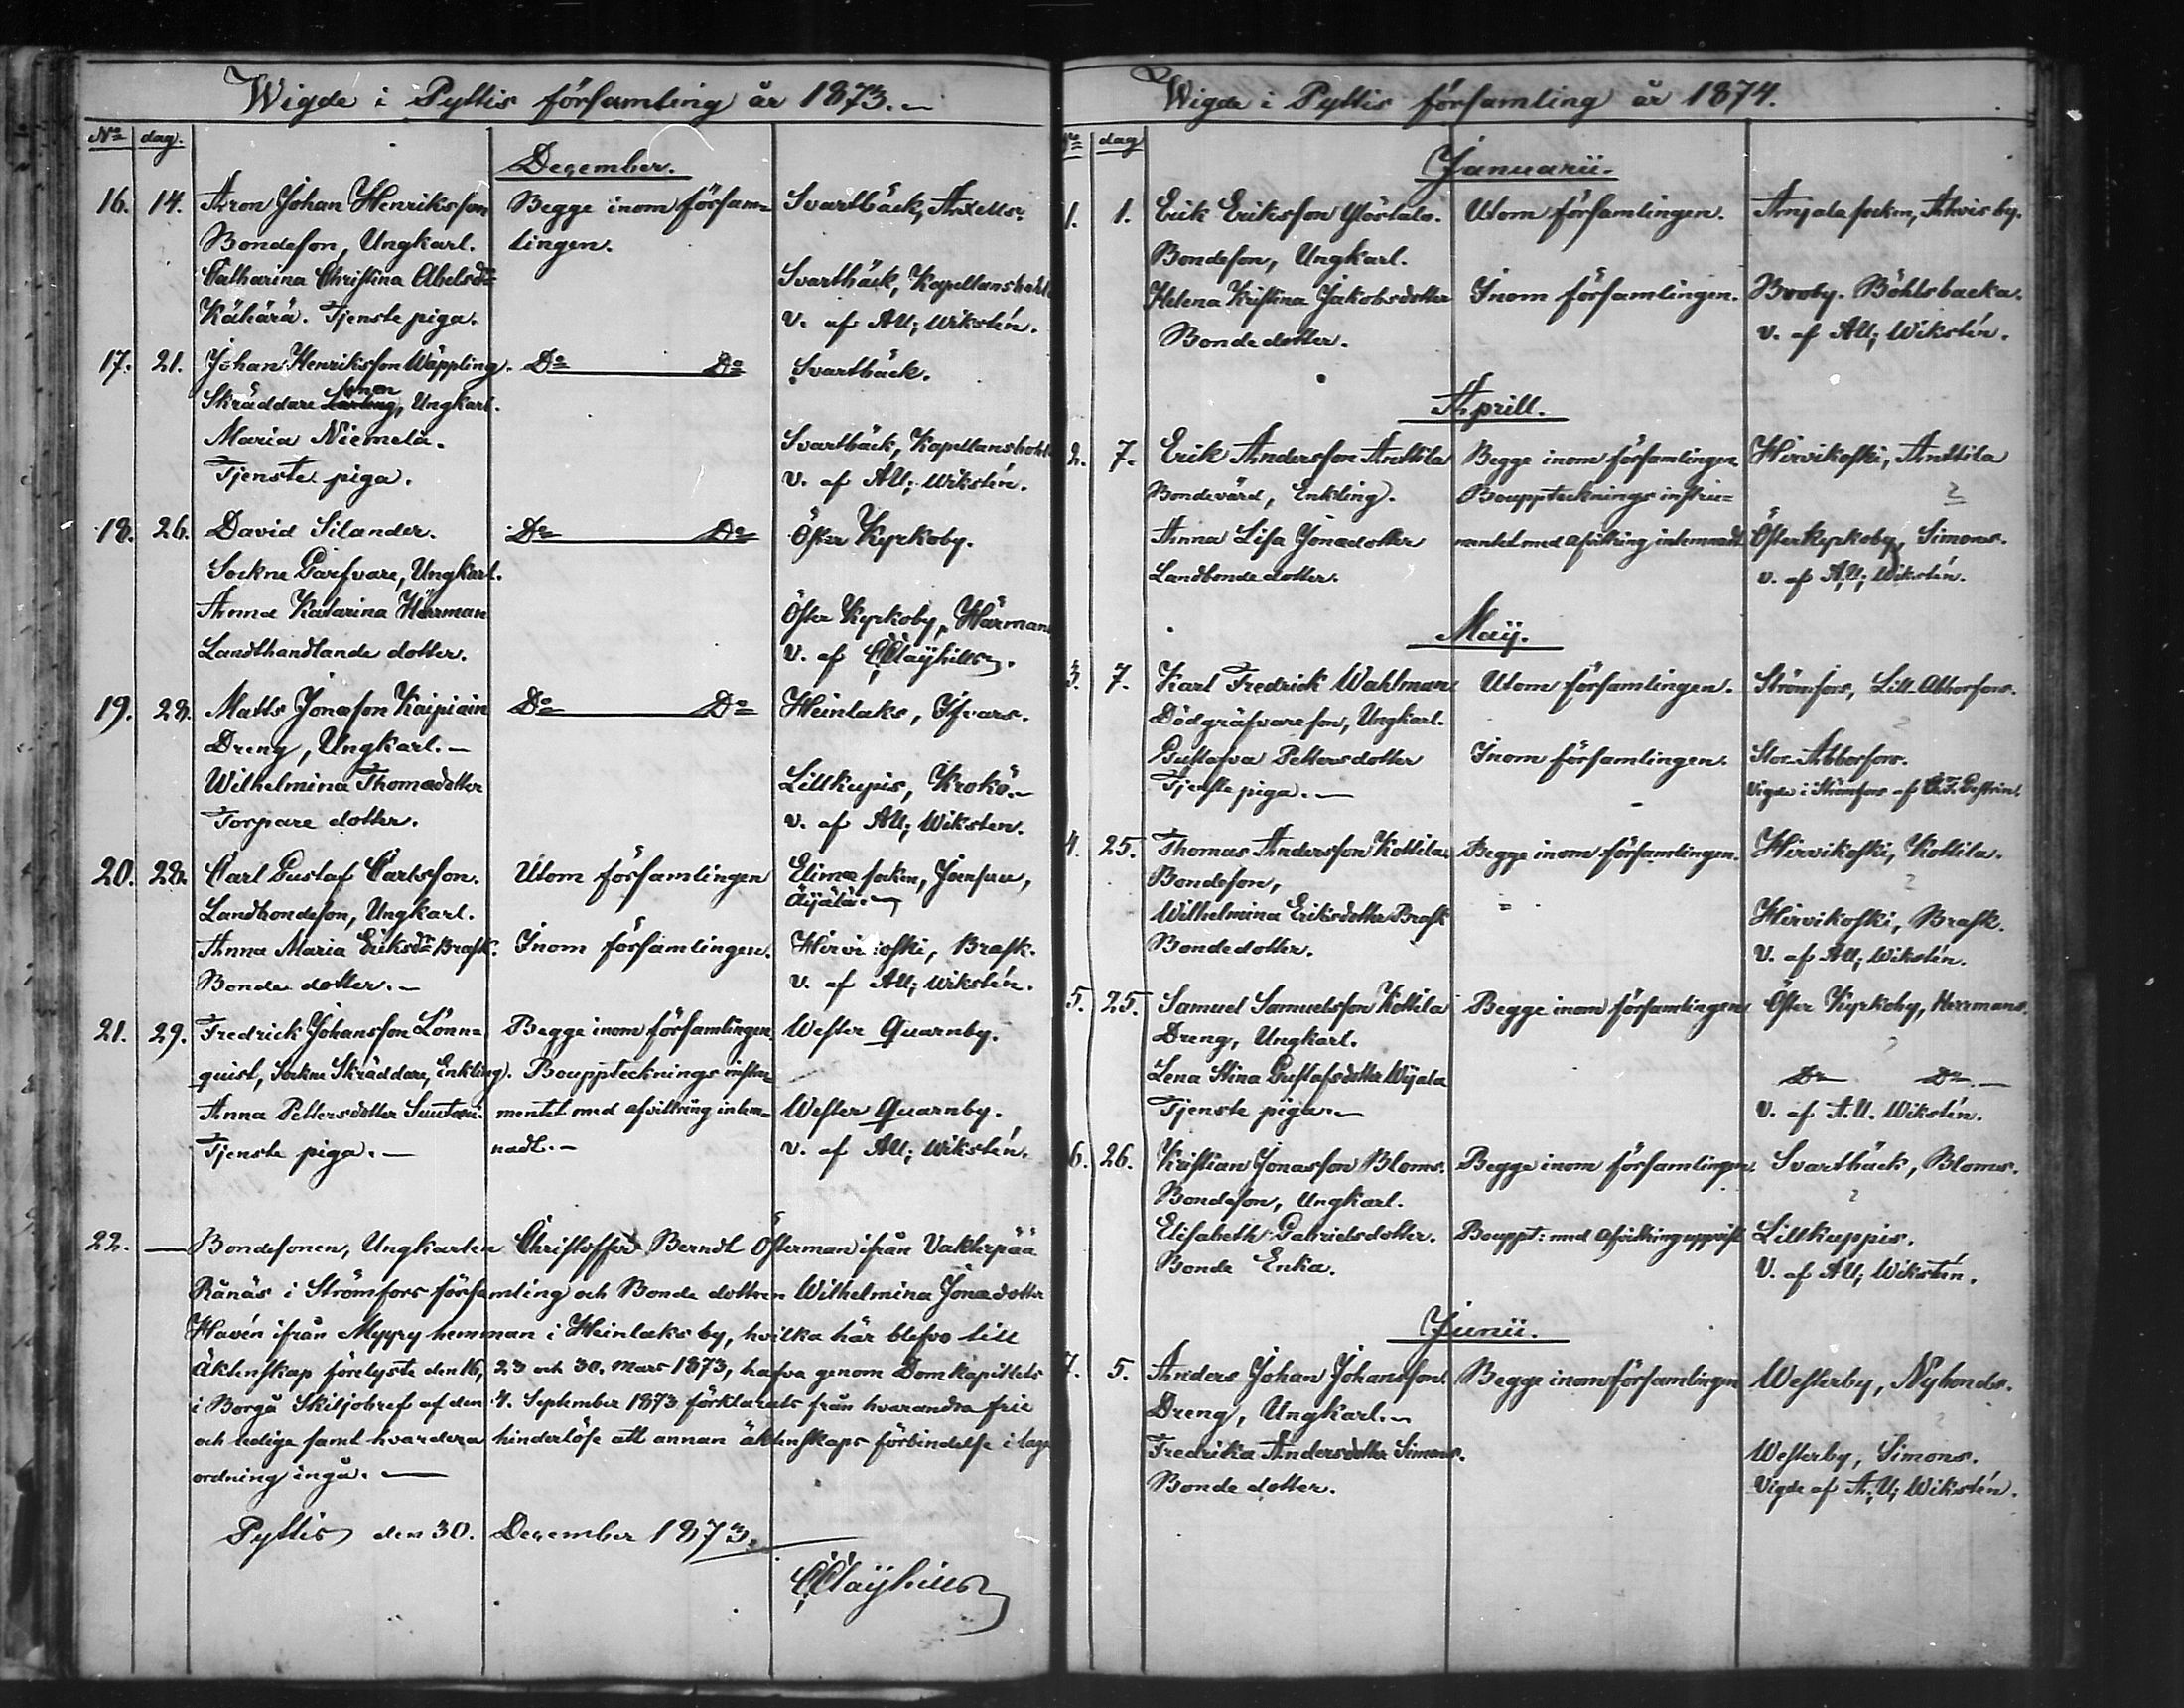 Wigde i Pyttis församling år 1873.
No dag.
December.
16. 14. Aron Johan Henriksson Begge inom försam= Svartbäck, Axells.
Bondeson, Ungkarl. lingen.
Catharina Christina Abelsdr Svartbäck, Kapellansbohl
Kähärä. Tjenste piga. v. af AU; Wikstén.
17. 21. Johan Henriksson Wäppling. Do Do Svartbäck.
Skräddare sonen, Ungkarl.
Maria Niemelä. Svartbäck, Kapellansbohl
Tjenste piga. v. af AU; Wikstén.
18. 26. David Silander. Do Do Öster Kyrkoby.
Sockne Garfvare, Ungkarl.
Anna Katarina Härman Öster Kyrkoby, Härmans
Landthandlande dotter. v. af CClayhills.
19. 28. Matts Jonasson Kaipiain Do Do Heinlaks, Ifvars.
Dreng, Ungkarl.
Wilhelmina Thomasdotter Lillkupis, Krokö.
Torpare dotter. v. af AU; Wikstén.
20. 28. Carl Gustaf Carlsson. Utom församlingen Elimä socken,
Landbondeson, Ungkarl.
Anna Maria Eriksdr Brask. Inom församlingen. Hirvikoski, Brask.
Bonde dotter. v. af AU; Wikstén.
21. 29. Fredrick Johansson Lönn= Begge inom församlingen. Wester Quarnby.
quist, Sockne Skräddare, Enkling. Bouppteckningsinstru=
Anna Pettersdotter Suutari. mentet med afvittring inlem= Wester Quarnby.
Tjenste piga. nadt. v. af AU; Wikstén.
22. Bondesonen, Ungkarlen Christoffer Berndt Österman ifrån Vakterpää
Rånäs i Strömfors församling och Bonde dottren Wilhelmina Jonædotter
Havén ifrån Myyry hemman i Heinlaks by, hvilka här blefvo till
äktenskap förelyste den 16, 23 och 30. Mars 1873, hafva genom Domkapitlets
i Borgå Skiljobref af den 4. September 1873 förklarats från hvarandra frie
och ledige samt hvardera hinderlöse att annan äktenskaps förbindelse i laga
ordning ingå.
Pyttis den 30. December 1873.
CClayhills
Wigde i Pyttis församling år 1874.
No dag
Januarii.
1. 1. Erik Eriksson Utom församlingen. Anjala socken, by.
Bondeson, Ungkarl.
Helena Kristina Jakobsdotter Inom församlingen. Broby. Böhlsbacka.
Bondedotter. v. af AU; Wikstén.
Aprill.
2. 7. Erik Andersson Anttila Begge inom församlingen Hirvikoski, Anttila
Bondevärd, Enkling. Bouppteckningsinstru= ?
Anna Lisa Jonædotter mentet med afvittring inlemnadt. Österkyrkoby, Simons.
Landbonde dotter. v. af A,U; Wikstén.
Maij.
3. 7. Karl Fredrick Wahlman Utom församlingen. Strömfors, Lill Abborfors.
Dödgräfvareson, Ungkarl. ?
Gustafva Pettersdotter Inom församlingen. Stor Abborfors.
Tjenste piga. Vigde i Strömfors af
4. 25. Thomas Andersson Kottila. Begge inom församlingen. Hirvikoski, Kottila.
Bondeson, ?
Wilhelmina Eriksdotter Brask Hirvikoski, Brask.
Bondedotter. V. af AU; Wikstén.
5. 25. Samuel Samuelsson Kottila Begge inom församlingen Öster Kyrkoby, Herrmans.
Dreng, Ungkarl. ?
Lena Stina Gustafsdotter Wyala Do Do
Tjenste piga. V. af A.U. Wikstén.
6. 26. Kristian Jonasson Bloms. Begge inom församlingen. Svartbäck, Bloms.
Bondeson, Ungkarl. ?
Elisabeth Gabrielsdotter. Bouppt: med afvittring uppvist Lillkuppis.
Bonde Enka. V. af AU; Wikstén.
Junii.
7. 5. Anders Johan Johansson. Begge inom församlingen Westerby, Nybonds.
Dreng, Ungkarl.
Fredrika Andersdotter Simons. Westerby, Simons.
Bonde dotter. Vigde af A,U; Wikstén.